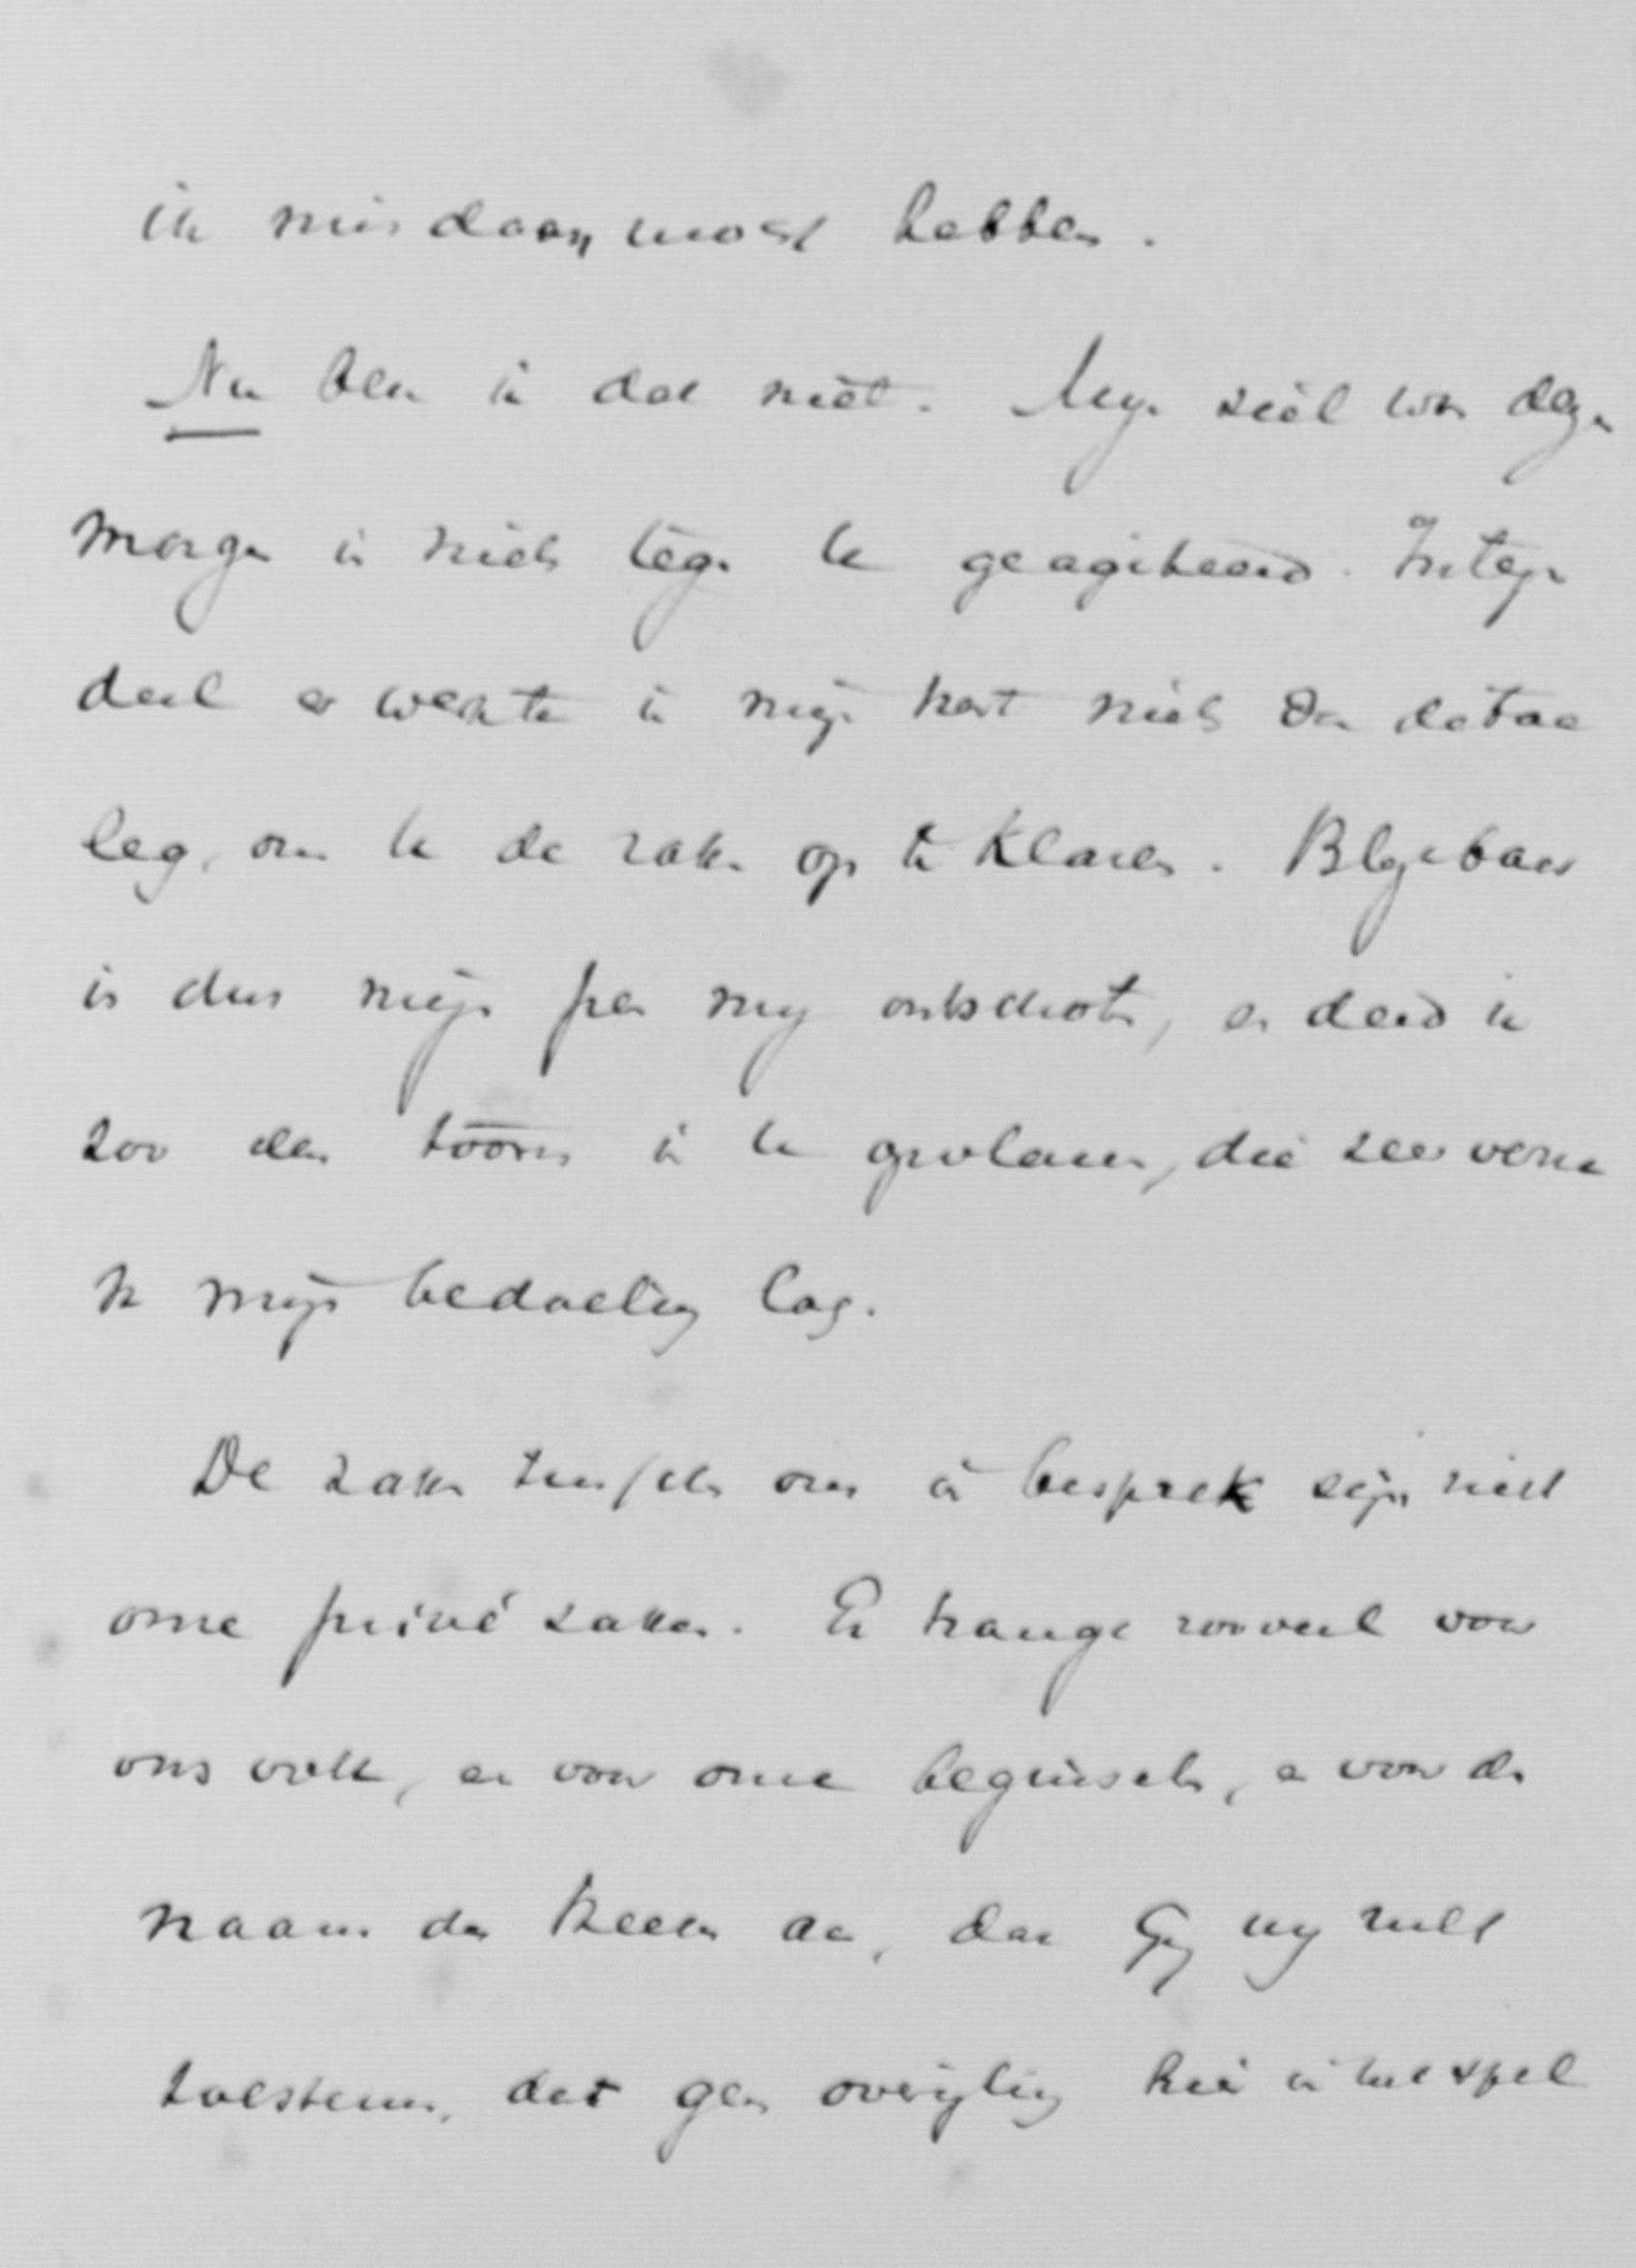 ik misdaan moest hebben.
Nu ben ik dat niet. Mijn ziel was dezen
morgen in niets tegen U geagiteerd. Integen
deel er werkte in mijn hart niets dan de
leg, om U de zaken op te klaren. Blijkbaar
is dus mijn pen mij ontschoten, en deed ik
zoo den toorn in U opvlamen, die zeer verre
van mijn bedoeling lag.
De zaken tusschen ons in bespreking zijn niet
onze privé zaken. Er hangt zooveel voor
ons volk, en voor onze beginselen, en voor den
naam des Heeren aan, dat Gij mij zult
toestemmen, dat geen overijling hier in het spel